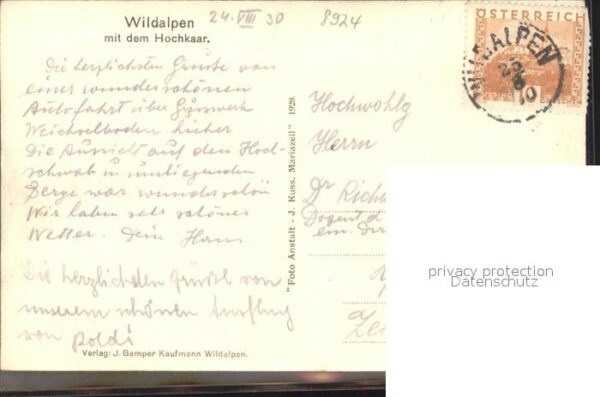 Wildalpen
mit dem Hochkaar.
24. VIII 30
8924
ÖSTERREICH
WILDALPEN
Die herzlichsten Grüße von
einer wunderschönen
Autofahrt über Gusswerk
Weichselboden hieher.
Die Aussicht auf den Hoch-
schwab u umliegenden
Berge war wunderschön
Wir haben sehr schönes
Wetter. Dein Hans.
Die herzlichsten Grüße von
unserem schönen Ausflug
von Poldi
Verlag: J. Gamper Kaufmann Wildalpen.
"Foto Anstalt - J. Kuss. Mariazell" 1929.
Hochwohlg
Herrn
Dr Richa
Dozent d
em. Dir
privacy protection
Datenschutz